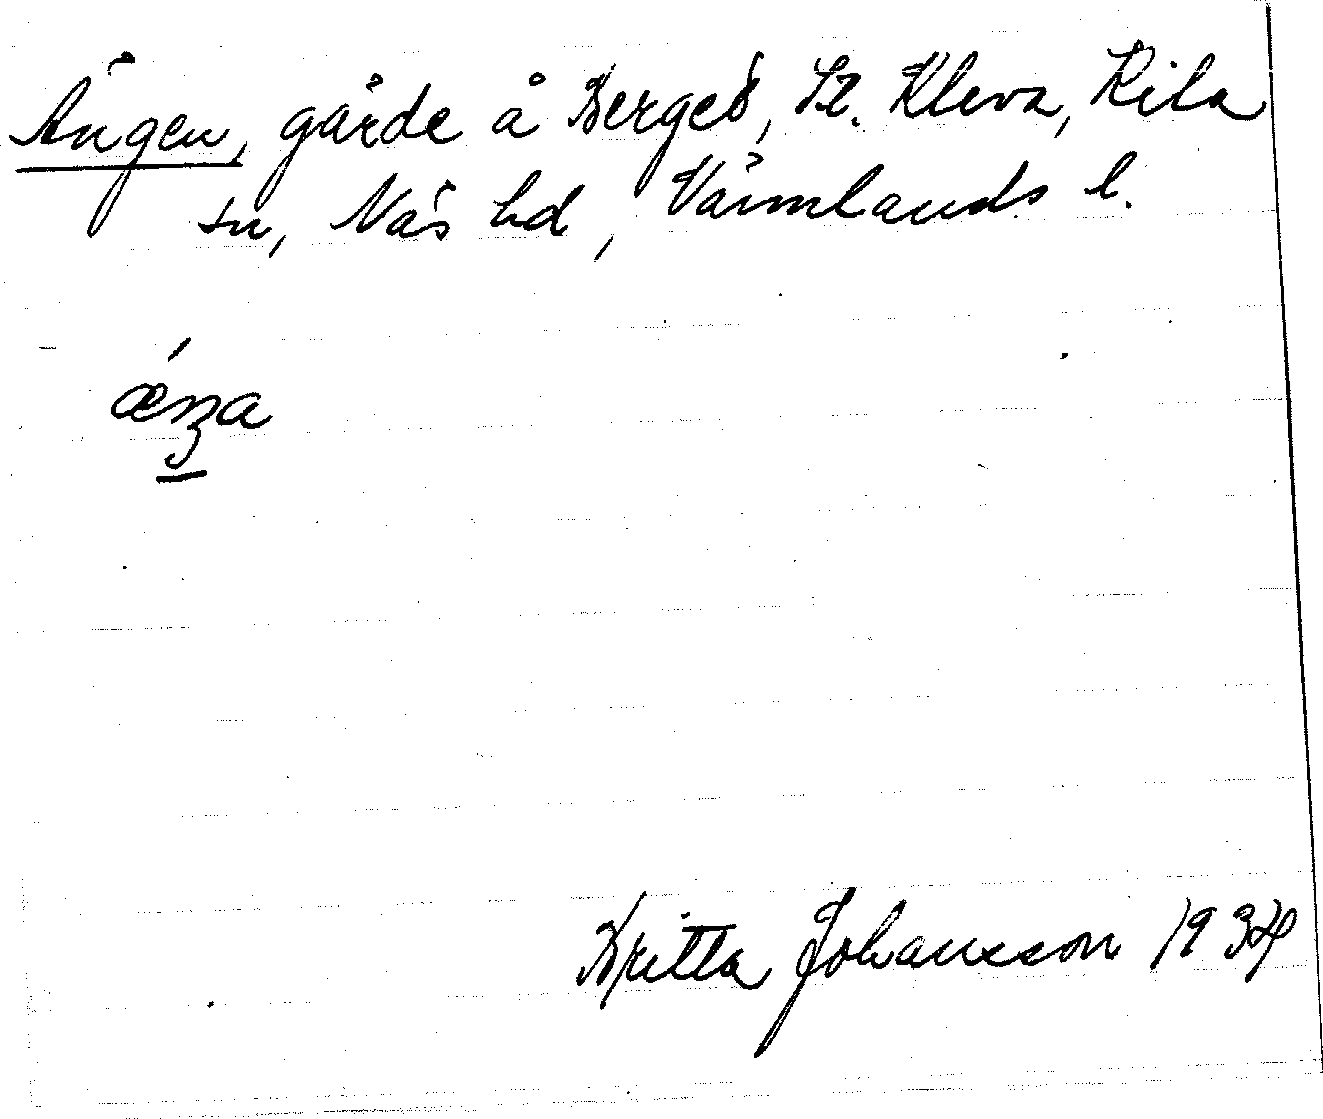 Ängen, gärde å Bergeb, St. Kleva, Kila
sn, Näs hd, Värmlands l.
ǽŋa
Britta Johansson 1934